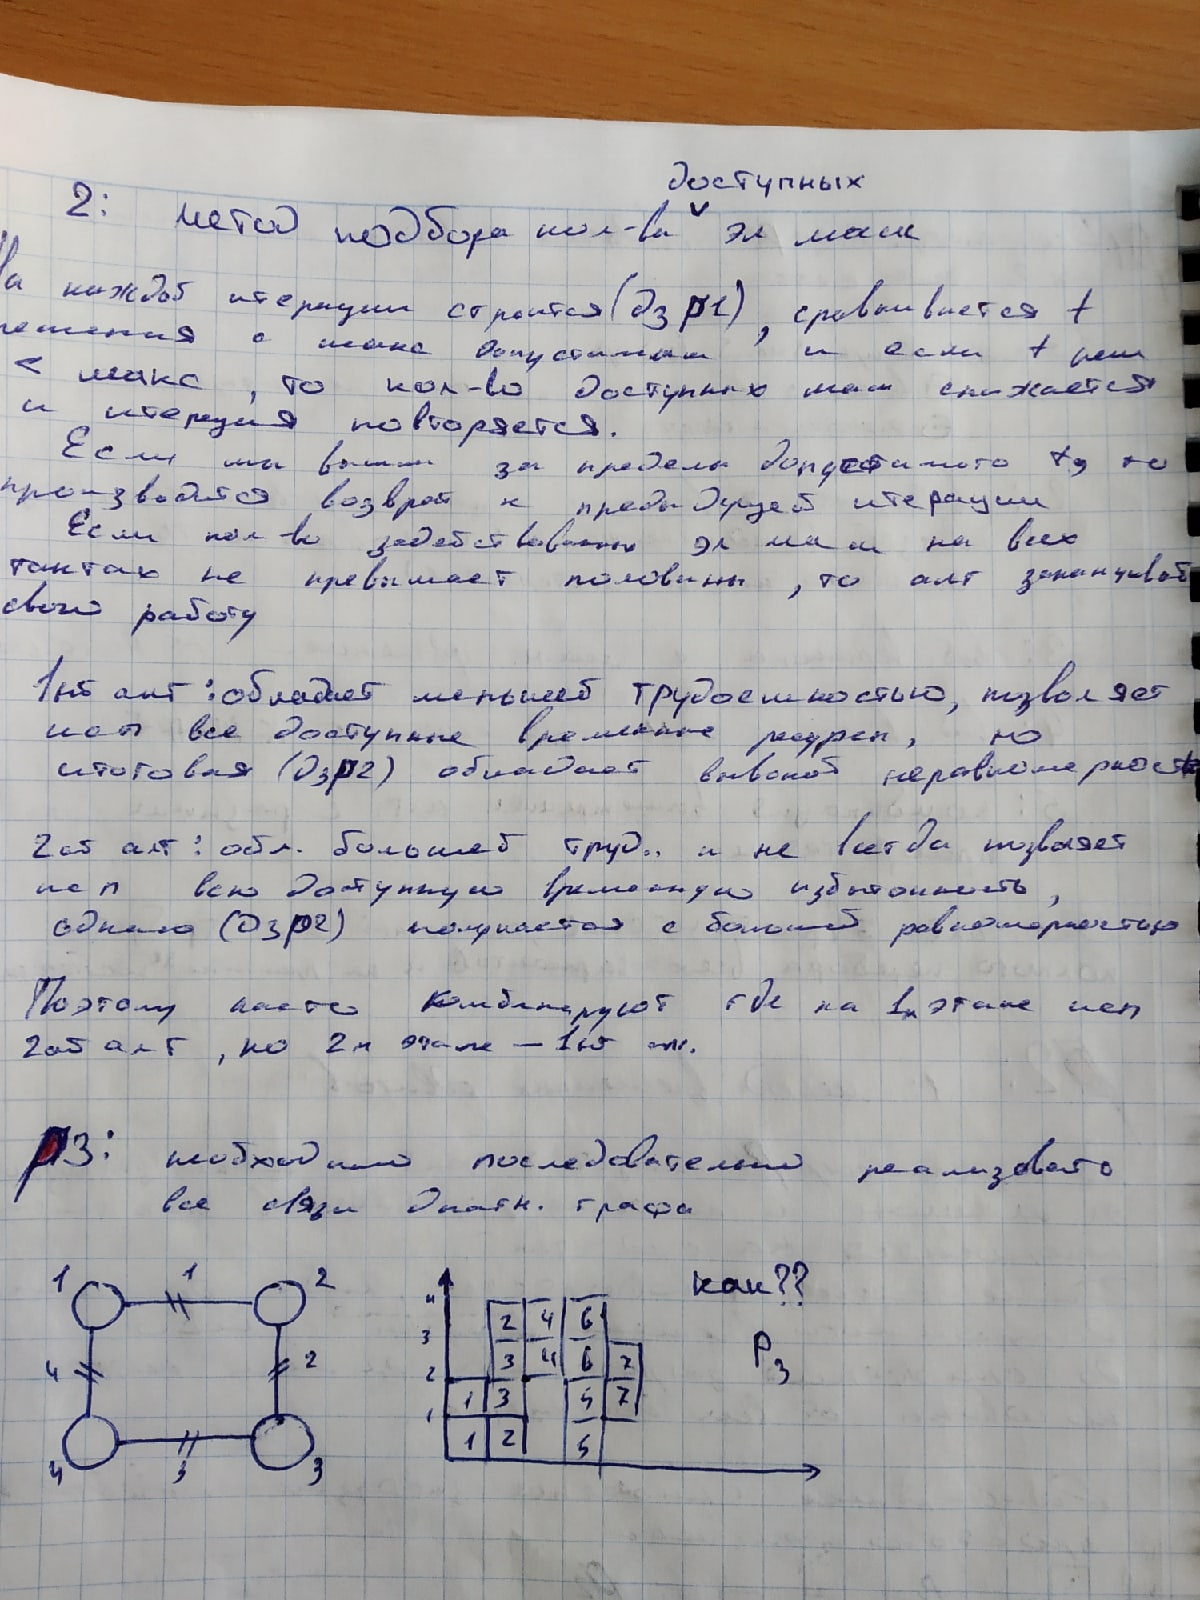 доступных
2: метод подбора кол-ва эл маш
На каждой итерации строится (Дзр1), сравнивается t
решения с макс допустимым и если t реш
< макс, то кол-во доступных маш снижается
и итерация повторяется.
Если мы вышли за пределы допустимого tд то
производится возврат к предыдущей итерации
Если кол-во задействованных эл маш на всех
тактах не превышает половины, то алг заканчивает
свою работу
1ый алг: обладает меньшей трудоемкостью, позволяет
исп все доступные временные ресурсы, но
итоговая (Дзр2) обладает высокой неравномерность
2ой алг: обл. большей труд. и не всегда позволяет
исп всю доступную временную избыточность,
однако (Дзр2) получается с большей равномерностью
Поэтому часто комбинируют где на 1м этапе исп
2ой алг, на 2м этапе – 1ый алг.
р3: необходимо последовательно реализовать
все связи графа
1 1 2
4 2
4 3 3
4 3 2 1
2 4 6
3 4 6 7
1 3 5 7
1 2 5
как??
P3